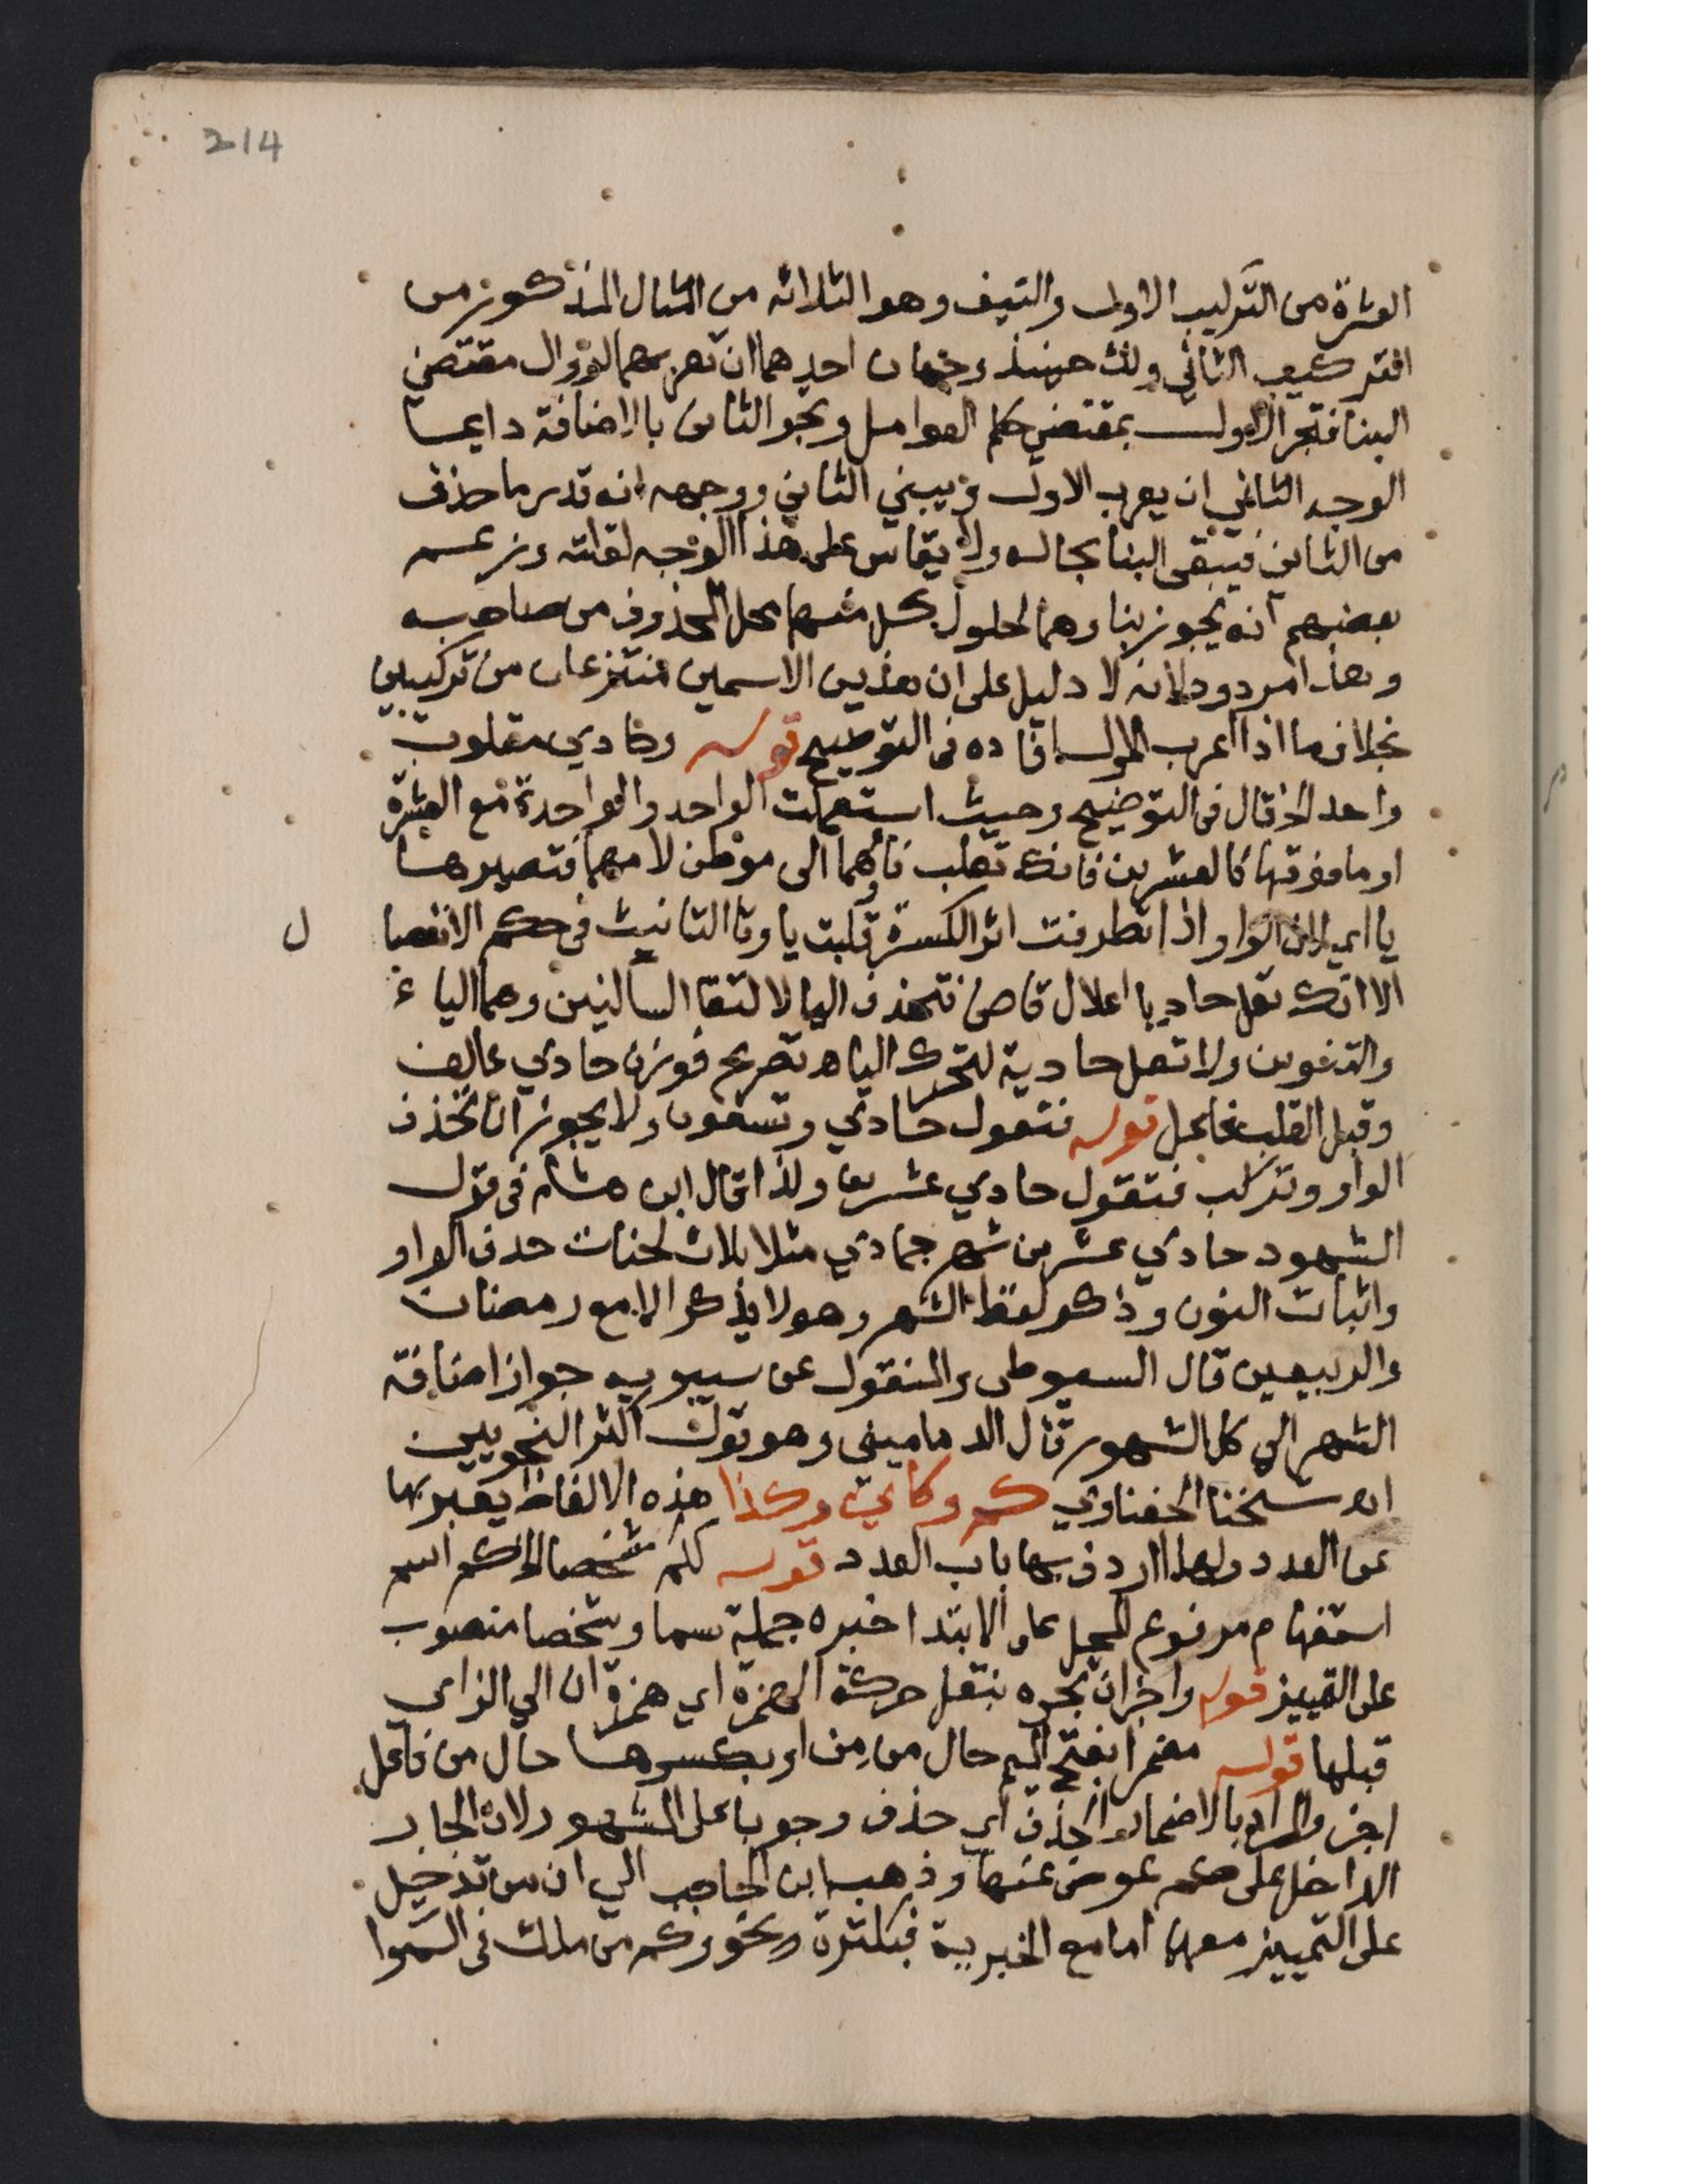 214
العشرة من التركيب الاول والنيف وهو الثلاثه من المثال المذكور من
التركيب الثاني ولك حينئذ وجهان احدهما ان تعربهما لزوال مقتضي
البنا فتجر الاول بمقتضي حكم العوامل وتجر الثاني بالاضافة دايما
الوجه الثاني ان يعرب الاول ويبني الثاني ووجهه انه قدر ما حذف
من الثاني فيبقى البنا بحاله ولا يقاس على هذا الوجه لقلته وزعم
بعضهم انه يجوز بناوهما لحلول كل منهما محل المحذوف من صاحبه
وهذا مردود لانه لا دليل على ان هذين الاسمين منتزعان من تركيبين
بخلاف ما اذا اعرب الاول افاده في التوضيح قوله وحادي مقلوب
واحد الخ قال في التوضيح وحيث استعملت الواحد والواحدة مع العشرة
او ما فوقها كالعشرين فانك تقلب فاؤهما الى موطن لامهما فتصيرها
يا اي لان الواو اذا تطرفت اثر الكسرة قلبت يا وتا التانيث في حكم الانفصا
ل
الا انك تعل حاديا اعلال قاض فتحذف اليا لالتقا الساكنين وهما الياء
والتنوين ولا تعل حادية لتحرك الياء اه تصريح فوزن حادي عالف
وقبل القلب فاعل قوله فتقول حادي وتسعون ولا يجوز ان تحذف
الواو وتركب فتقول حادي عشرين ولذا قال ابن هشام في قول
الشهود حادي عشرين شهر جمادي مثلا ثلاث لحنات حذف الواو
واثبات النون وذكر لفظ الشهر وهو لا يذكر الا مع رمضان
والربيعين قال السيوطي والمنقول عن سيبويه جواز اضافة
الشهر الى كل الشهور قال الدماميني وهو قول اكثر النحويين
اه شيخنا الحفناوي كم وكاي وكذا هذه الالفاظ يعبر بها
عن العدد ولهذا اردف بها باب العدد قوله ككم شخصا الخ كم اسم
استفهام مرفوع المحل على الابتدا خبره جملة سما وشخصا منصوب
على التمييز قوله واجزان تجره بنقل حركة الهمزة اي همزة ان الي الزاي
قبلها قوله مضمرا بفتح الميم حال من من او بكسرها حال من فاعل
اجز والمراد بالاضمار الحذف اي حذف وجوبا على المشهور لان الجار
الداخل على كم عوض عنها وذهب ابن الحاجب الي ان من تدخل
على التمييز معها اما مع الخبرية فبكثرة نحو وكم من ملك في السموا